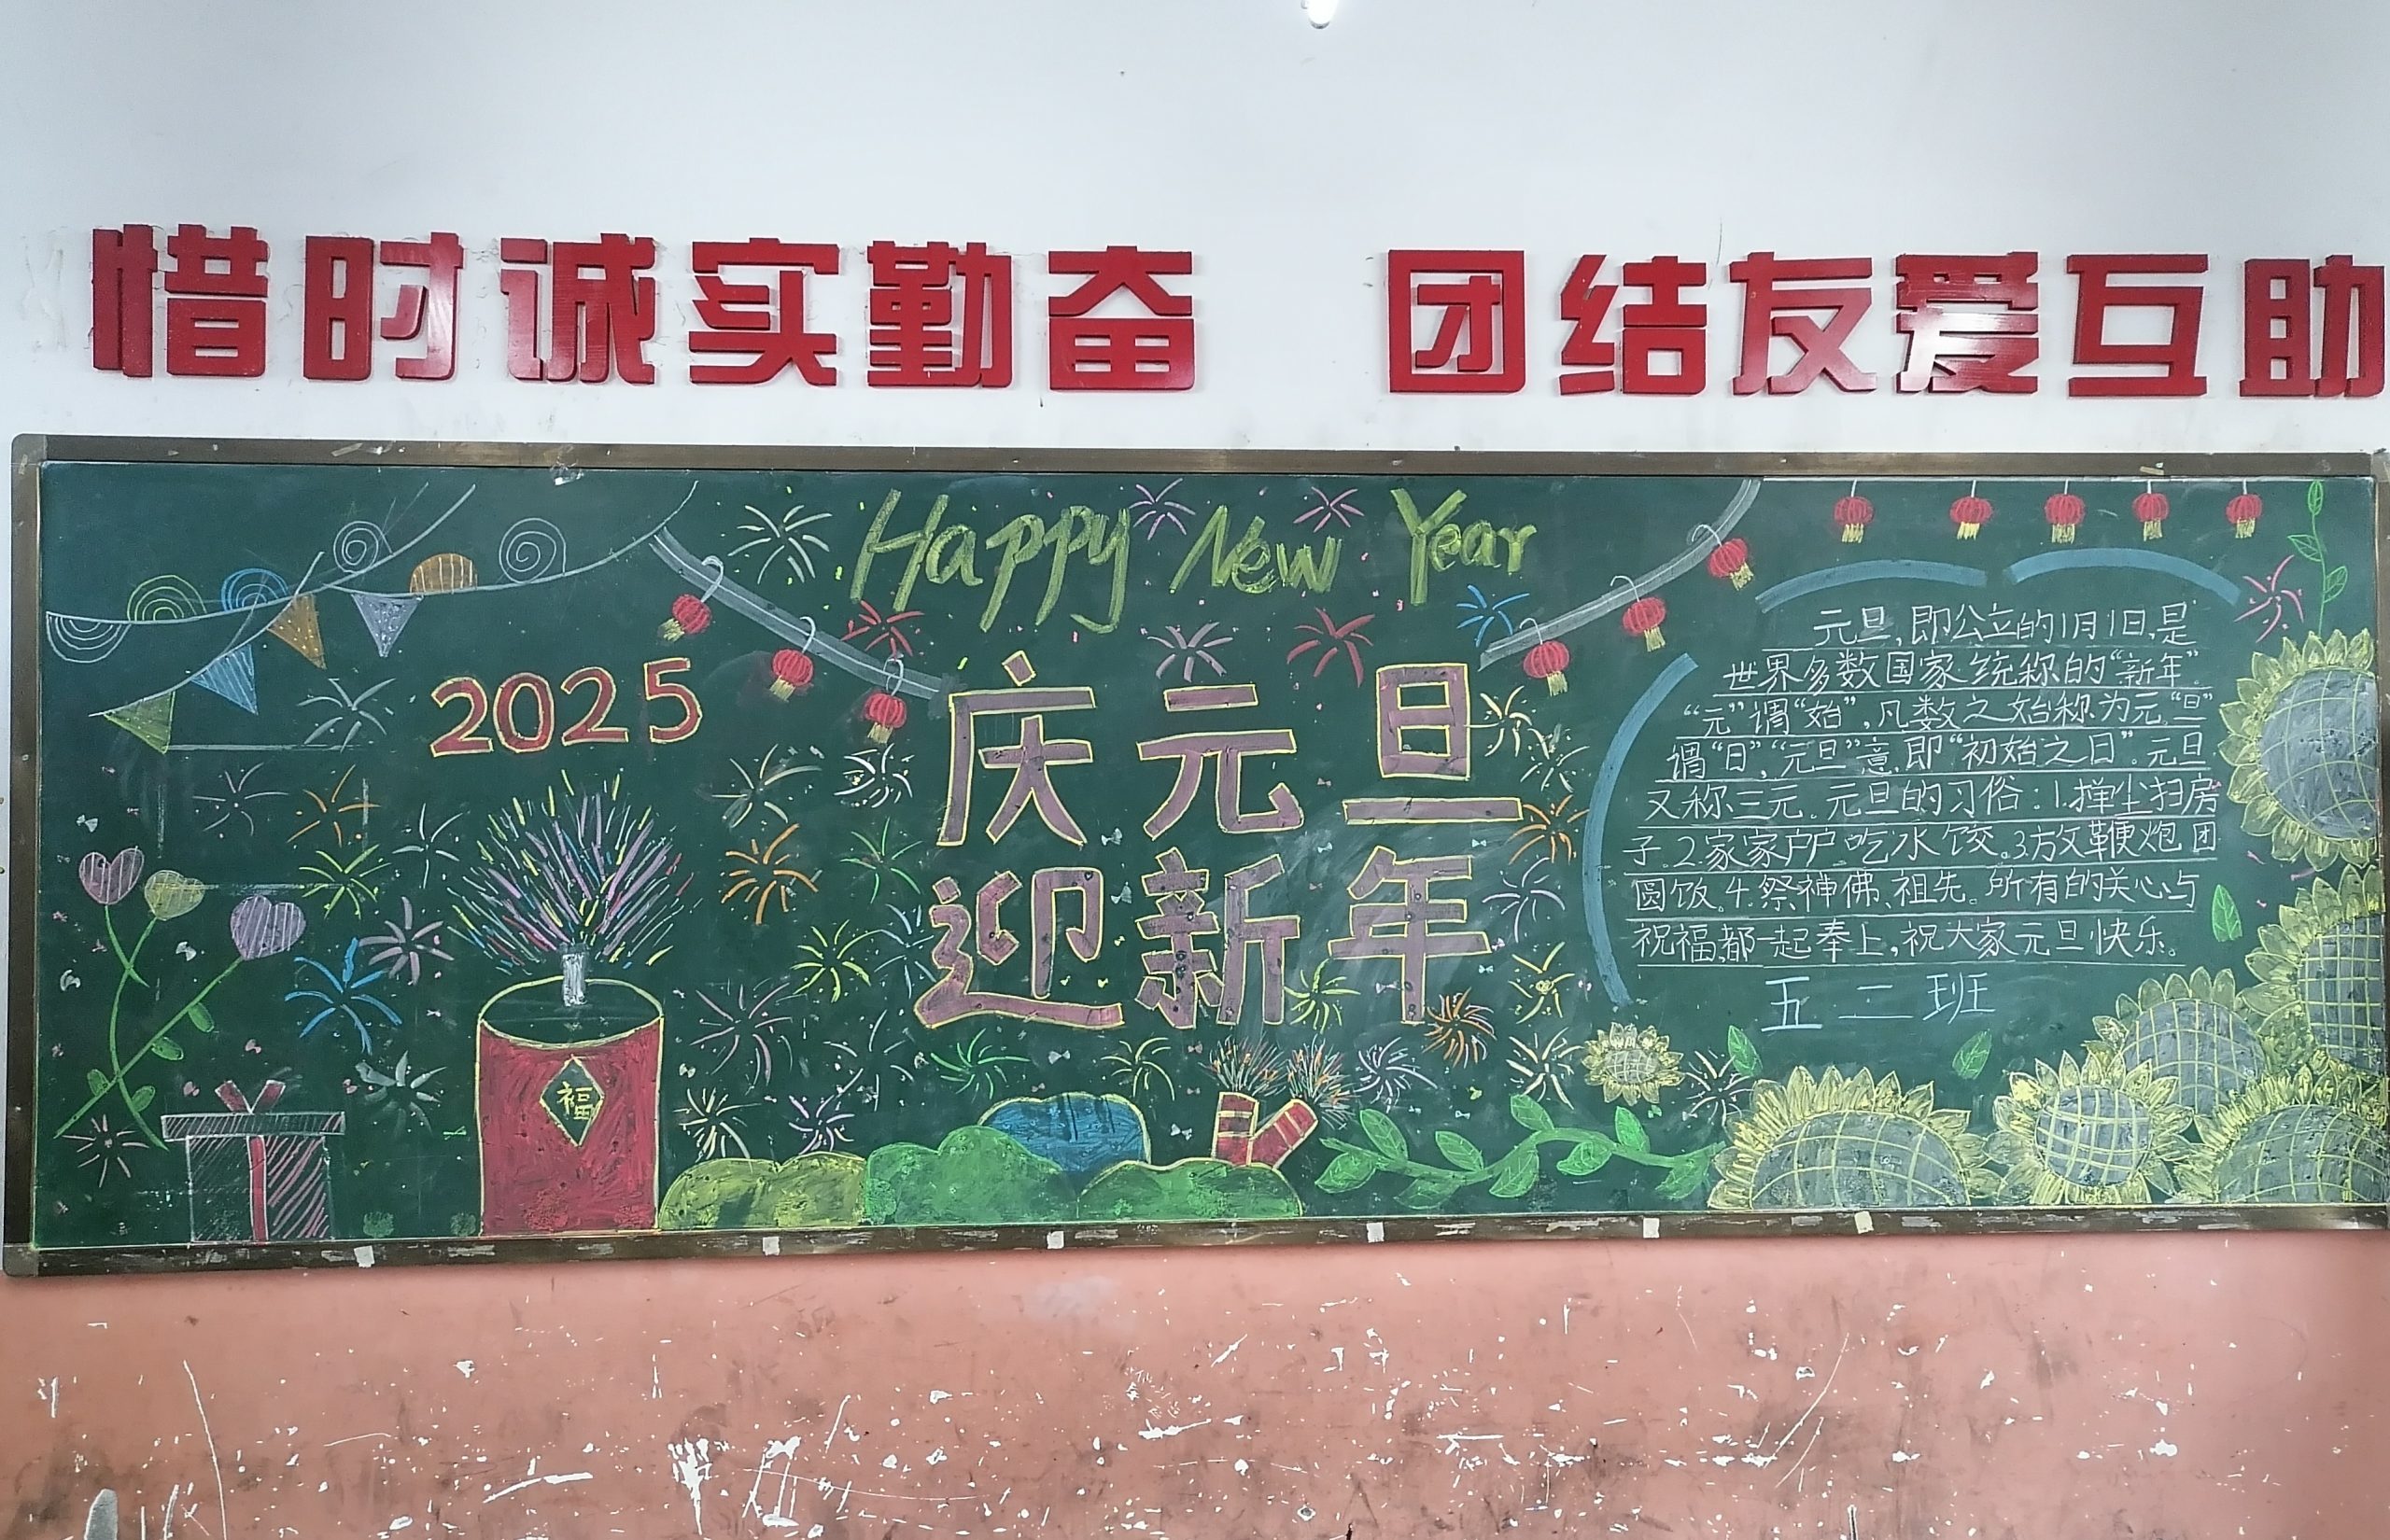 惜时诚实勤奋 团结友爱互助
Happy New Year
2025
庆元旦
迎新年
福
元旦,即公立的1月1日,是
世界多数国家统称的“新年”.
“元”谓“始”,凡数之始称为元.“旦”
谓“日”,“元旦”意即“初始之日”。元旦
又称三元。元旦的习俗:1.掸尘扫房
子。2.家家户户吃水饺。3.放鞭炮团
圆饭。4.祭神佛、祖先。所有的关心与
祝福,都一起奉上,祝大家元旦快乐。
五二班